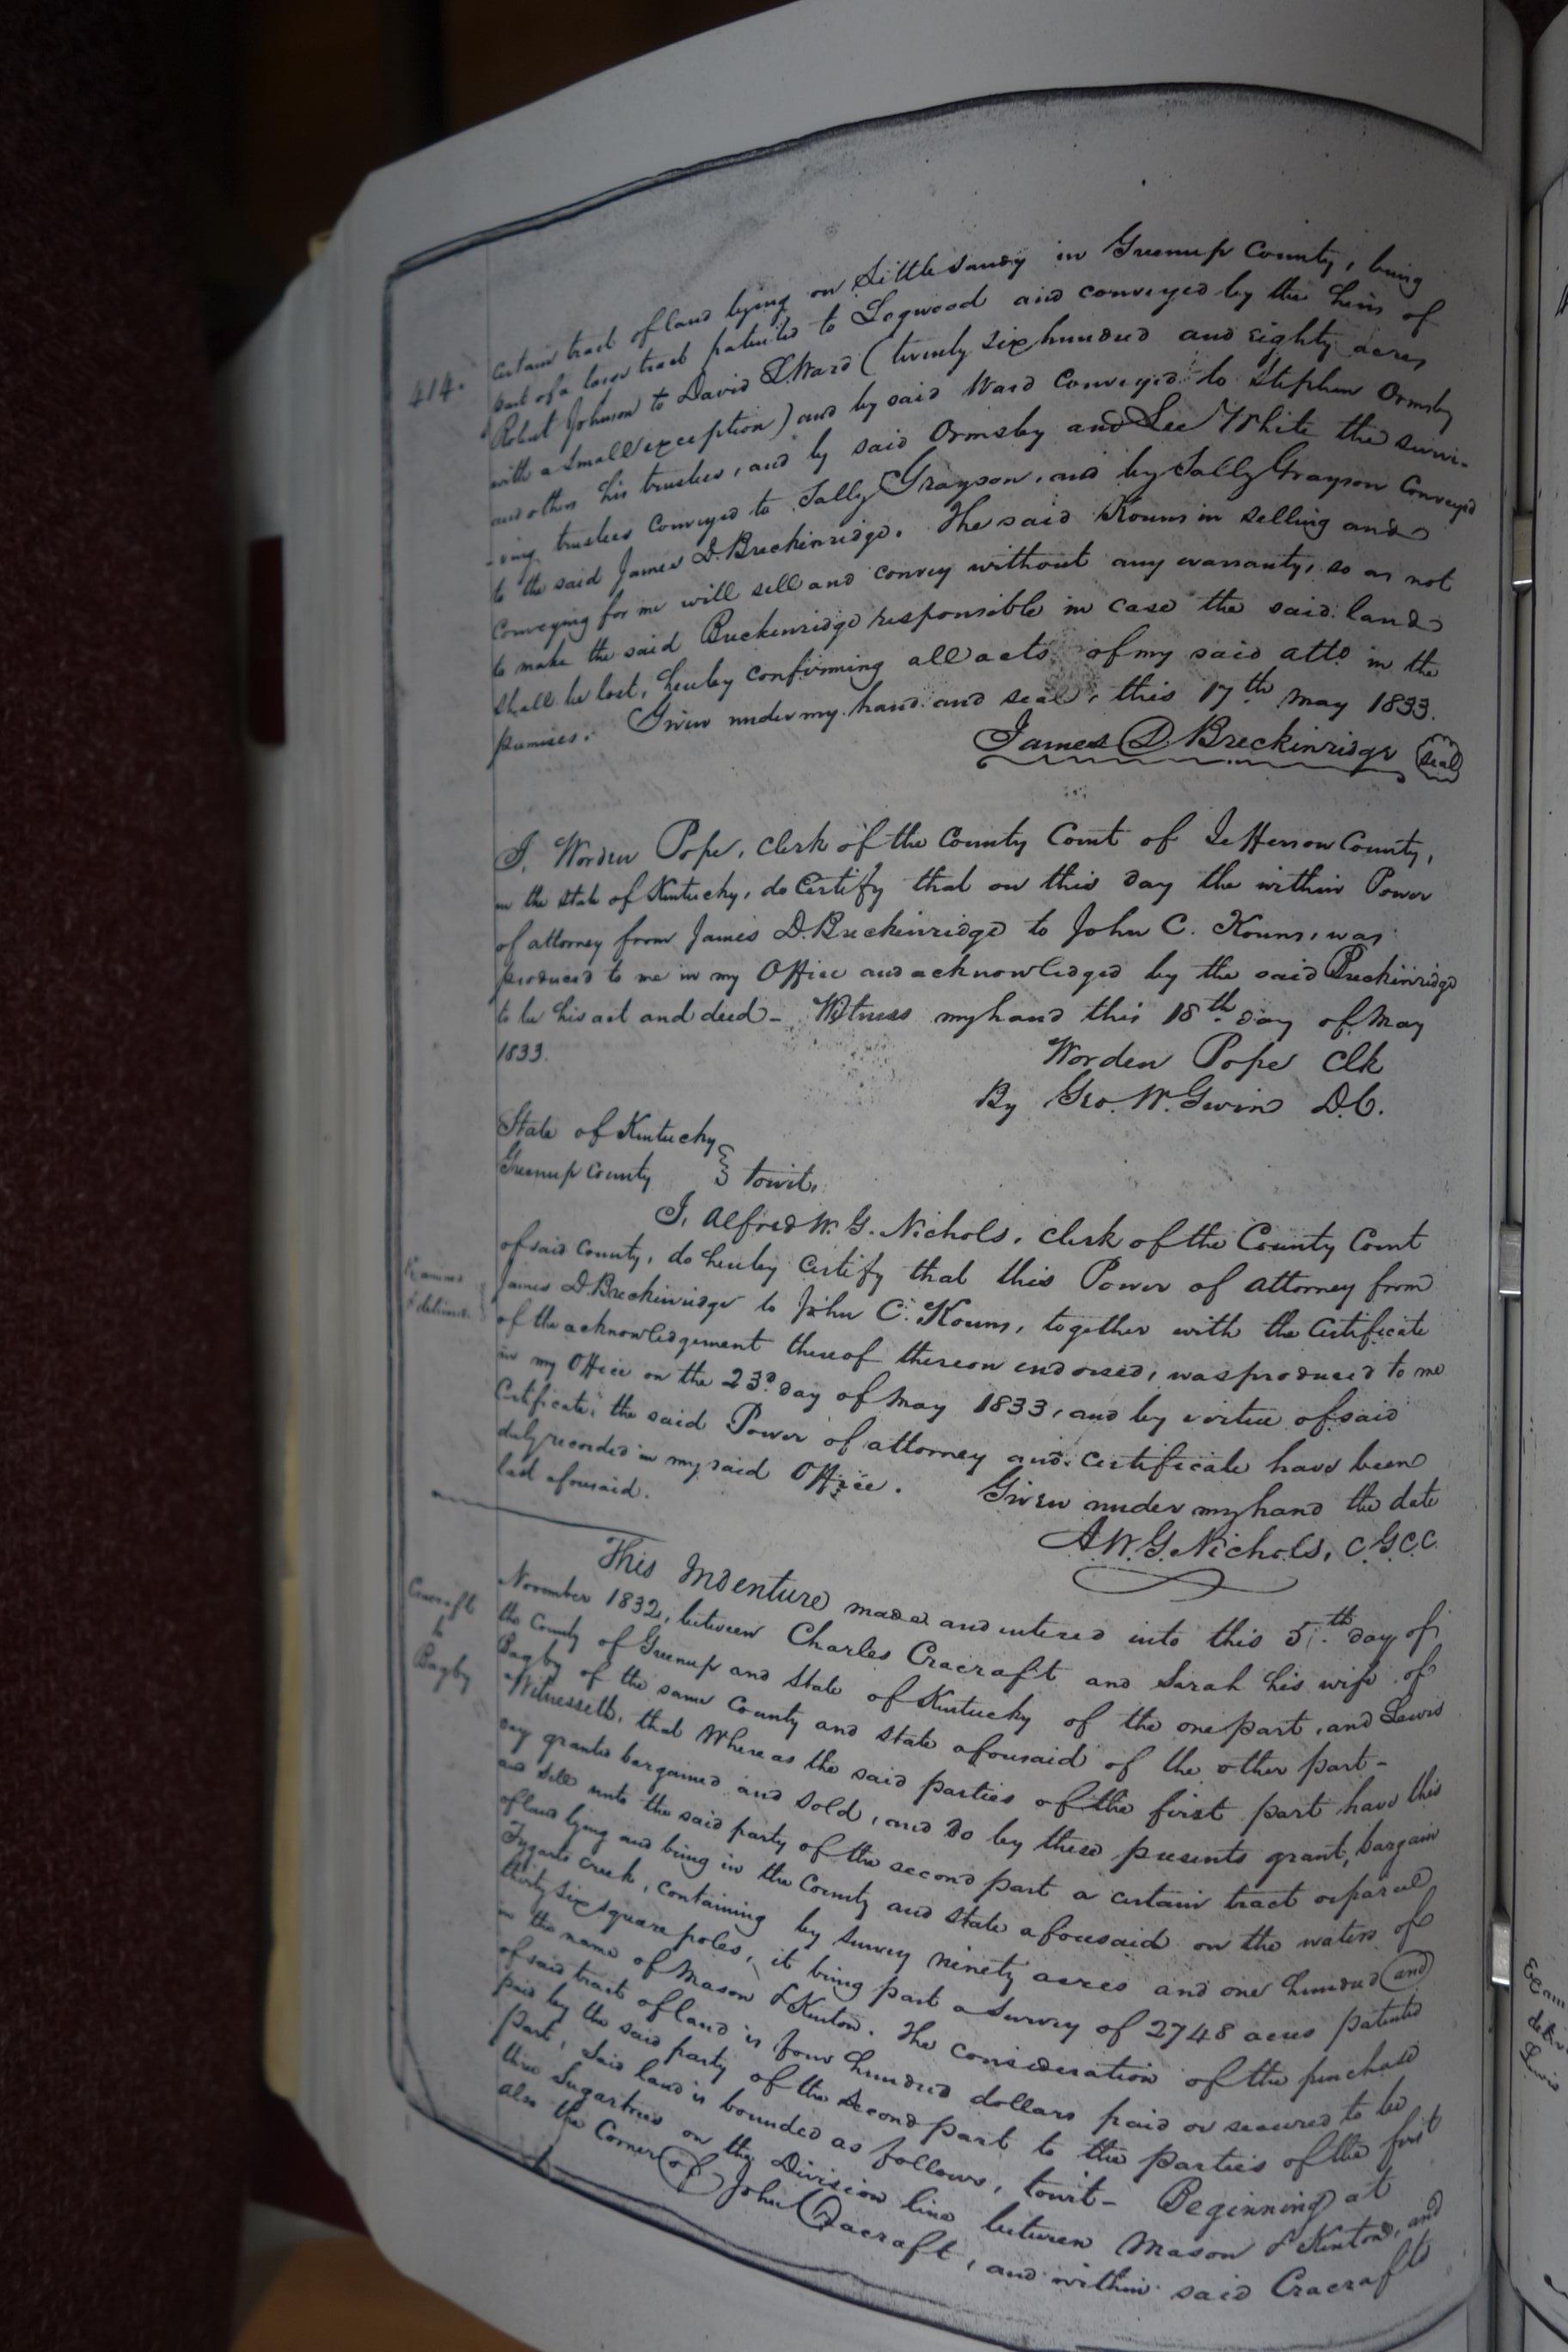 414.
certain tract of land lying on Little Sandy in Greenup County, being
part of a large tract patented to Logwood and conveyed by the heirs of
Robert Johnson to David L. Ward (twenty six hundred and eighty acres
with a small exception) and by said Ward conveyed to Stephen Ormsby
and others his trustees, and by said Ormsby and Lee White the survi-
-ving trustees conveyed to Sally Grayson, and by Sally Grayson conveyed
to the said James D. Breckinridge. The said Kouns in selling and
conveying for me will sell and convey without any warranty, so as not
to make the said Breckenridge responsible in case the said land
shall be lost, hereby confirming all acts of my said atto in the
premises. Given under my hand and seal, this 17th May 1833.
James D Breckinridge seal
I, Worden Pope, clerk of the County Court of Jefferson County,
in the state of Kentucky, do certify that on this day the within Power
of attorney from James D. Breckinridge to John C. Kouns, was
produced to me in my Office and acknowledged by the said Breckinridge
to be his act and deed - Witness my hand this 18th day of May
1833.
Worden Pope Clk
By Geo. W. Gwin D.C.
State of Kentucky
Greenup County } towit,
I, Alfred W. G. Nichols, clerk of the County Court
of said County, do hereby certify that this Power of attorney from
James D. Breckinridge to John C. Kouns, together with the certificate
of the acknowledgement thereof thereon endorsed, was produced to me
in my Office on the 23d day of May 1833, and by virtue of said
Certificate, the said Power of attorney and certificate have been
duly recorded in my said Office. Given under my hand the date
last aforesaid.
A. W. G. Nichols, C.G.C.C.
Cracraft
to
Bagby
This Indenture made and entered into this 5th day of
November 1832, between Charles Cracraft and Sarah his wife of
the County of Greenup and State of Kentucky of the one part, and Lewis
Bagby of the same County and State aforesaid of the other part -
Witnesseth, that Whereas the said parties of the first part have this
day granted bargained and sold, and do by these presents grant, bargain
and sell unto the said party of the second part a certain tract or parcel
of land lying and being in the County and State aforesaid on the waters of
Tygarts creek, containing by survey ninety acres and one hundred and
thirty six square poles, it being part a survey of 2748 acres patented
in the name of Mason & Kenton. The consideration of the purchase
of said tract of land is four hundred dollars paid or secured to be
paid by the said party of the second part to the parties of the first
part, said land is bounded as follows, towit - Beginning at
three Sugartrees on the Division line between Mason & Kenton, and
also the Corner of John Cracraft, and within said Cracrafts